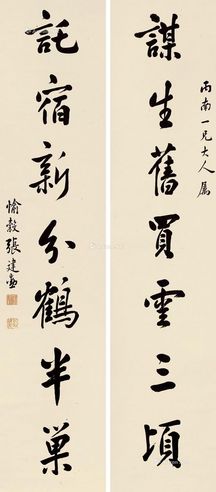 丙南一兄大人属
謀生舊買雲三頃
託宿新分鶴半巢
愉榖張建勳